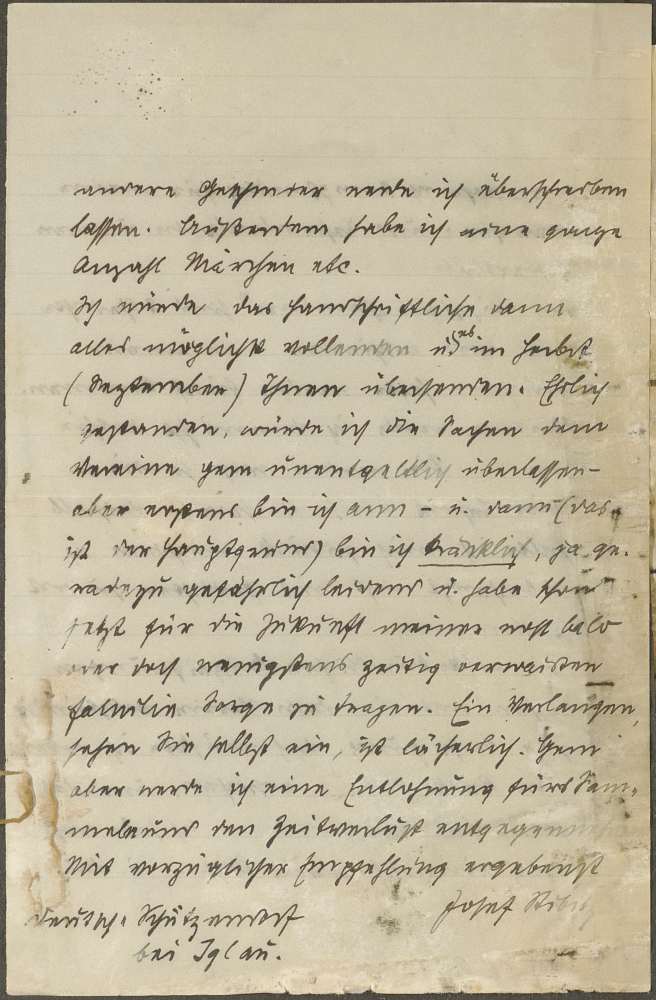 andere Geschwister werde ich überschreiben
lassen. Außerdem habe ich eine ganze
Anzahl Märchen etc.
Ich würde das handschriftliche dann
alles möglichst vollenden u. es im Herbst
(September) Ihnen übersenden. Ehrlich
gestanden, würde ich die Sachen dem
Vereine gern unentgeltlich überlassen-
aber erstens bin ich arm - u. dann (das
ist der Hauptgrund) bin ich kränklich, ja ge-
radezu gefährlich leidend u. habe schon
jetzt für die Zukunft meiner wohl bald
oder doch wenigstens zeitig verwaisten
Familie Sorge zu tragen. Ein Verlangen,
sehen Sie selbst ein, ist lächerlich. Gern
aber werde ich eine Entlohnung fürs Sam-
meln und den Zeitverlust
Mit vorzüglicher Empfehlung ergebenst
Josef
Deutsch-Schützendorf
bei Iglau.